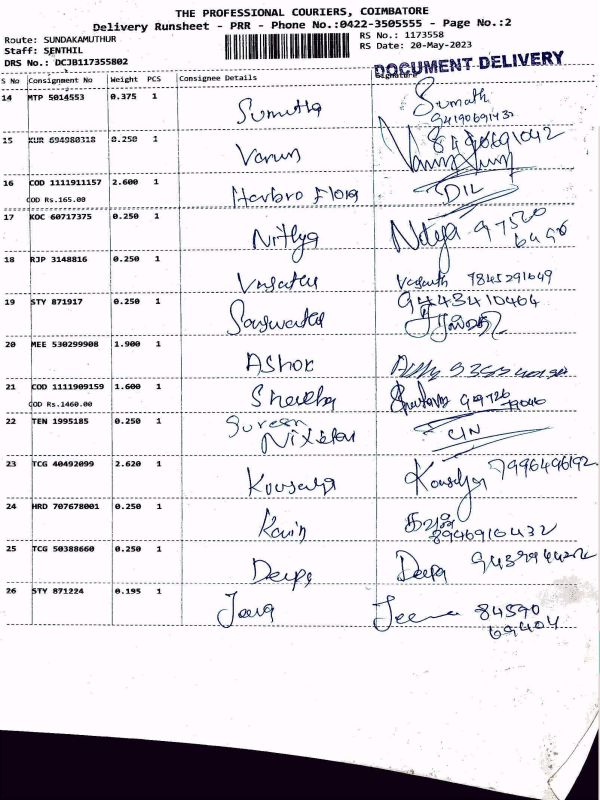 THE PROFESSIONAL COURIERS, COIMBATORE
Delivery Runsheet - PRR - Phone No.:0422-3505555 - Page No.:2
Route: SUNDAKAMUTHUR RS No.: 1173558
Staff: SENTHIL RS Date: 20-May-2023
DRS No.: DCJB117355802 DOCUMENT DELIVERY
S No Consignment No Weight PCS Consignee Details Signature
14 MTP 5014553 0.375 1 Sumitha Sumath
15 KUR 694980318 0.250 1 Varun
16 COD 1111911157 2.600 1 Harbro Flora DIL
COD Rs.165.00
17 KOC 60717375 0.250 1 Nithya Nitya 97520
18 RJP 3148816 0.250 1 Vasanth 7845291649
19 STY 871917 0.250 1 9443410464
20 MEE 530299908 1.900 1 Ashok
21 COD 1111909159 1.600 1
COD Rs.1460.00
22 TEN 1995185 0.250 1 Suresh CIN
23 TCG 40492099 2.620 1 Kousalya 7996496192
24 HRD 707678001 0.250 1 Kavin
8946910432
25 TCG 50388660 0.250 1 Deepa Deepa
26 STY 871224 0.195 1 Jeena Jeena 84590
69404